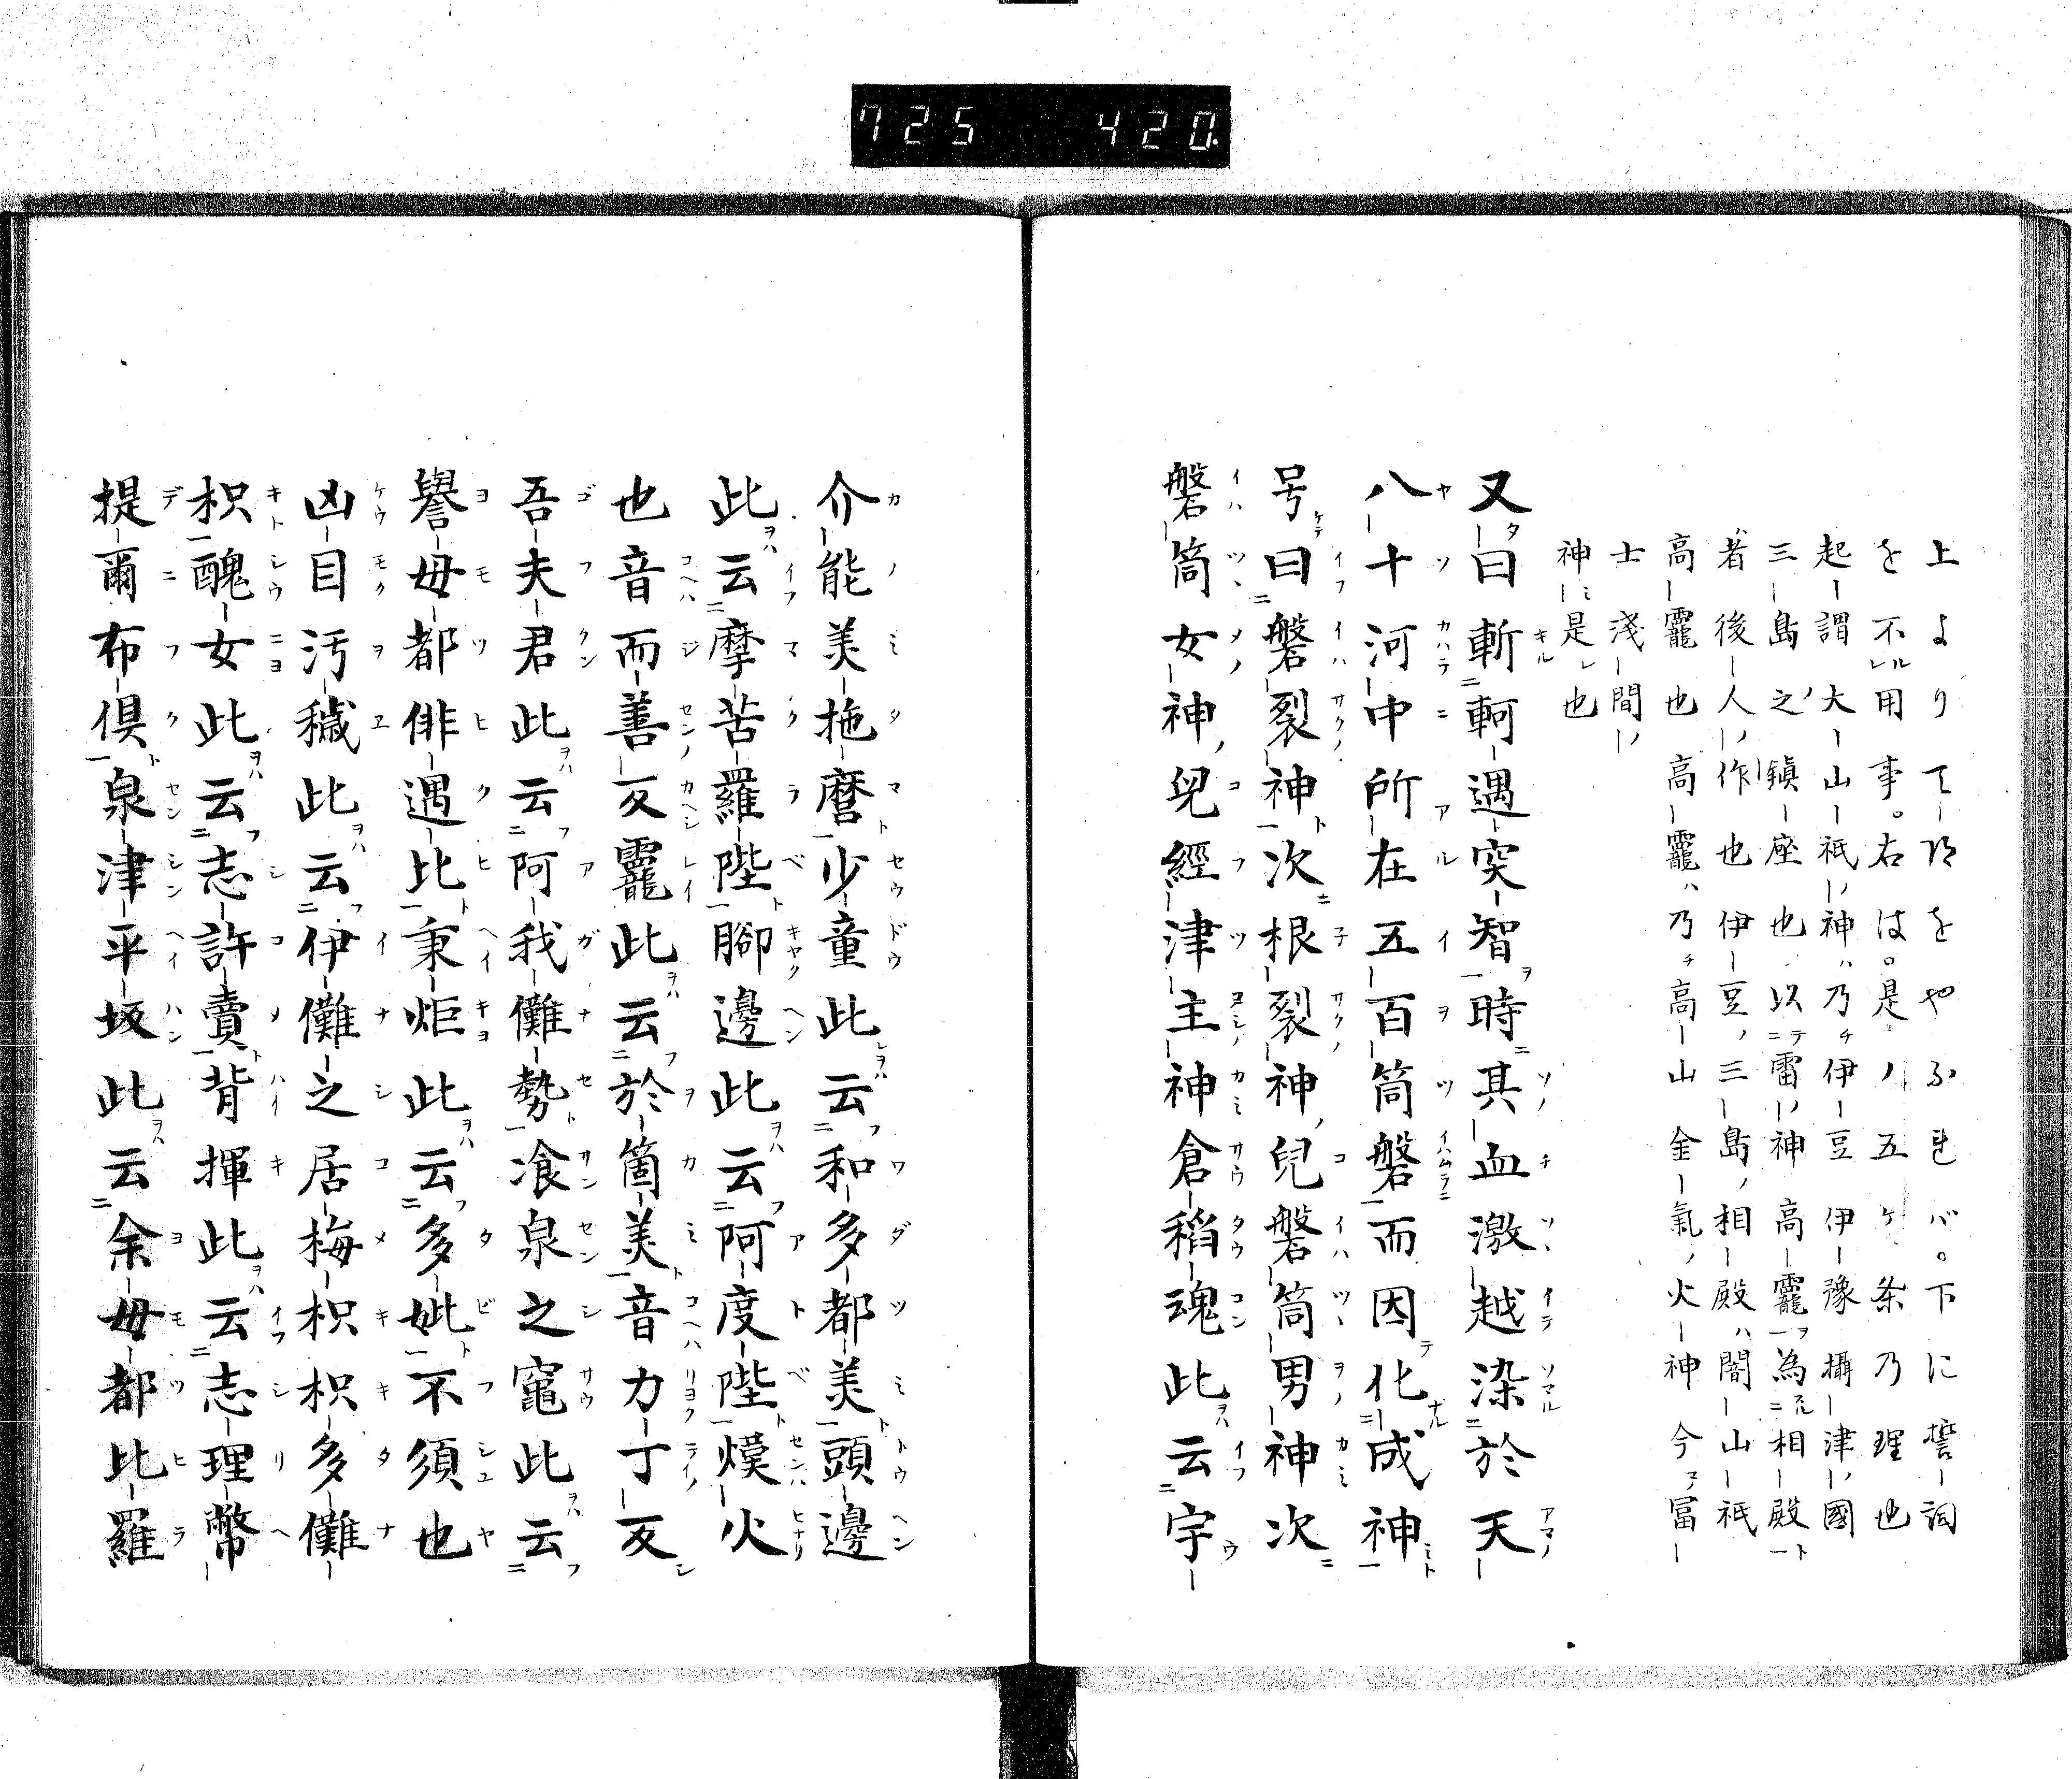 725 420.
上より て ー 次をやふれバ。下に誓ー詞
を不用事。右は。是ノ五ケ条乃理也
起ー謂大ー山ー祇ノ神ハ乃チ伊ー豆伊ー豫攝ー津ノ國
三ー島之鎮ー座也以テ雷ノ神高ー龗ヲ為相ー殿ト
者後ー人ノ作也伊ー豆ノ三ー島ノ相ー殿ハ闇ー山ー祇
高ー龗也高ー龗ハ乃チ高ー山金ー氣ノ火ー神今ヲ冨ー
士淺ー間ノ
神是也
又曰斬軻遇突智時其血激越染於天
八十河中所在五百筒磐而因化成神
号曰磐裂神次根裂神兒磐筒男神次
磐筒女神兒經津主神倉稻魂此云宇
介能美拖磨少童此云和多都美頭邊
此云摩苦羅陛腳邊此云阿度陛熯火
也音而善反龗此云於箇美音力丁反
吾夫君此云阿我儺勢飡泉之竈此云
譽毋都俳遇比秉炬此云多妣不須也
凶目汚穢此云伊儺之居梅枳枳多儺
枳醜女此云志許賣背揮此云志理幣
提爾布倶泉津平坂此云余毋都比羅